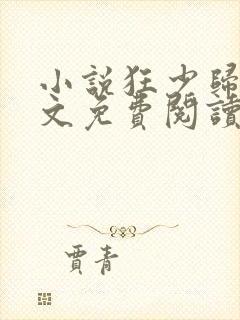 小說狂少歸
文免費閱讀
賈青